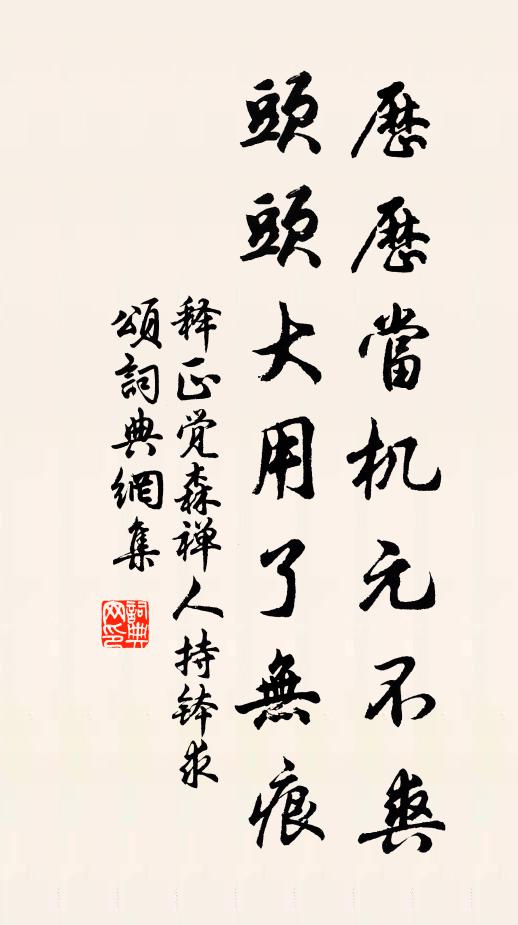 歷歷當机元不爽
頭頭大用了無痕
释正觉森禅人持钵求
頌詞典網集
詞典网印